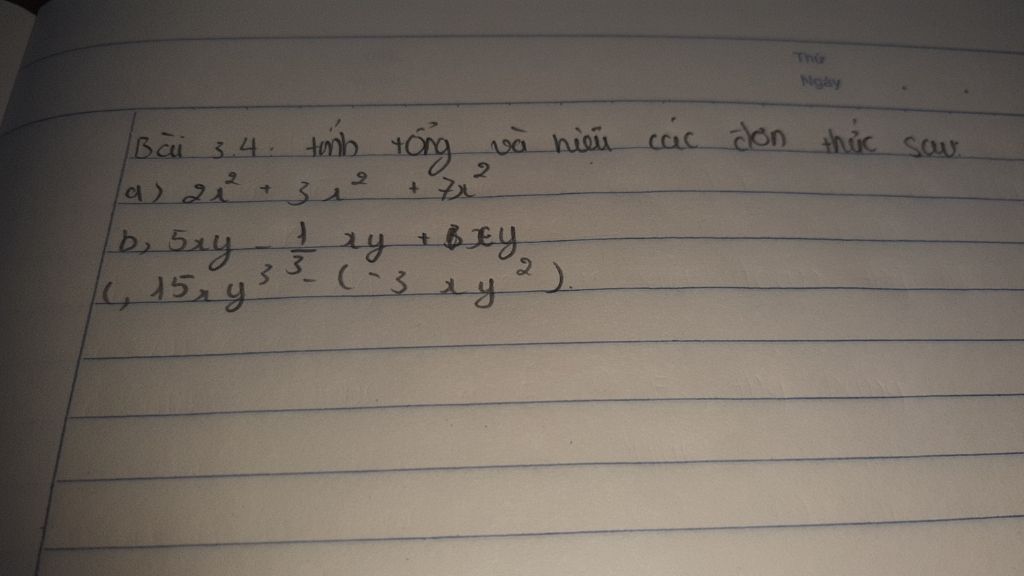 Thứ
Ngày
Bài 3.4. tính tổng và hiệu các đơn thức sau
a) 2x² + 3x² + 7x²
b, 5xy - 1/3 xy + xy
c, 15xy³ - (-3 xy²).